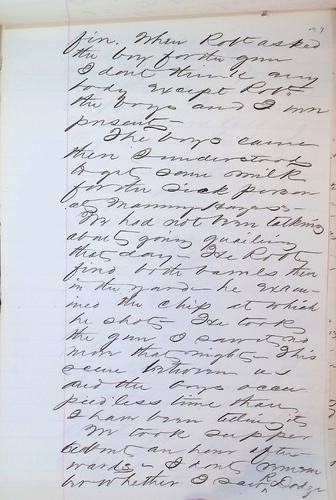 fin. When Robt asked
the boy for the gun
I dont think any
body except Robt
the boys and I were
present -
The boys came
then I understood
to get some milk
for the sick person
at Mammy Hayes -
We had not been talking
about going quailing
that day - He Robt
fired both barrels then
in the yard - he exam
ined the chip at which
he shot - He took
the gun I saw it no
more that night - This
scene between us
and the boys occu
pied less time than
I have been telling it
We took supper
about an hour after
wards - I dont remem
ber whether I saw Dodge